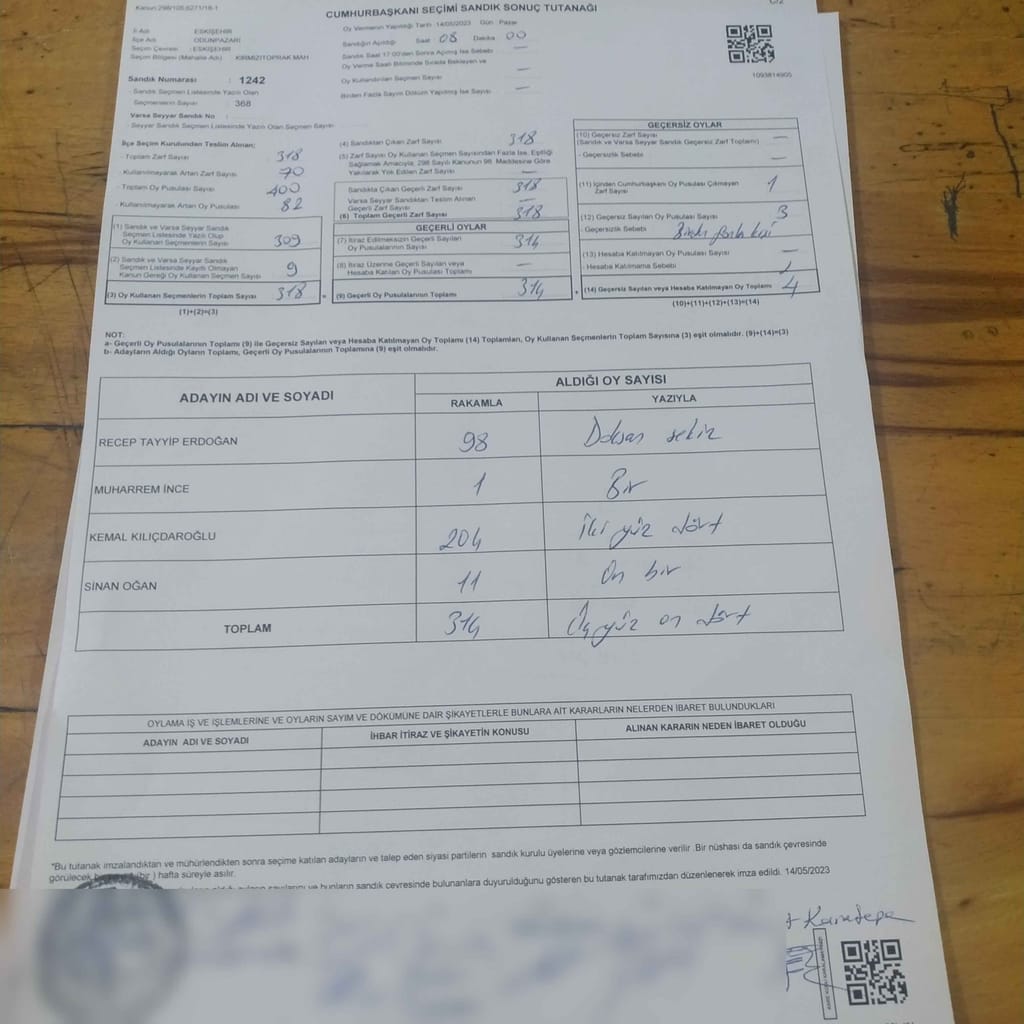 Kanun 298/105,6271/18-1
C/2
CUMHURBAŞKANI SEÇİMİ SANDIK SONUÇ TUTANAĞI
Oy Vermenin Yapıldığı Tarih :14/05/2023 Gün : Pazar
İl Adı : ESKİŞEHİR
İlçe Adı : ODUNPAZARI
Seçim Çevresi : ESKİŞEHİR
Seçim Bölgesi (Mahalle Adı) : KIRMIZITOPRAK MAH
Sandığın Açıldığı Saat 08 Dakika 00
Sandık Saat 17:00'den Sonra Açılmış İse Sebebi —
Oy Verme Saati Bitiminde Sırada Bekleyen ve
Oy Kullandırılan Seçmen Sayısı —
Birden Fazla Sayım Döküm Yapılmış İse Sayısı —
1093814905
Sandık Numarası : 1242
- Sandık Seçmen Listesinde Yazılı Olan
Seçmenlerin Sayısı : 368
Varsa Seyyar Sandık No :
- Seyyar Sandık Seçmen Listesinde Yazılı Olan Seçmen Sayısı :
İlçe Seçim Kurulundan Teslim Alınan;
- Toplam Zarf Sayısı 318
- Kullanılmayarak Artan Zarf Sayısı 70
- Toplam Oy Pusulası Sayısı 400
- Kullanılmayarak Artan Oy Pusulası 82
(1) Sandık ve Varsa Seyyar Sandık
Seçmen Listesinde Yazılı Olup
Oy Kullanan Seçmenlerin Sayısı 309
(2) Sandık ve Varsa Seyyar Sandık
Seçmen Listesinde Kayıtlı Olmayan
Kanun Gereği Oy Kullanan Seçmen Sayısı 9
(3) Oy Kullanan Seçmenlerin Toplam Sayısı 318 =
(1)+(2)=(3)
(4) Sandıktan Çıkan Zarf Sayısı 318
(5) Zarf Sayısı Oy Kullanan Seçmen Sayısından Fazla İse, Eşitliği
Sağlamak Amacıyla, 298 Sayılı Kanunun 98. Maddesine Göre
Yakılarak Yok Edilen Zarf Sayısı —
Sandıkta Çıkan Geçerli Zarf Sayısı 318
Varsa Seyyar Sandıktan Teslim Alınan
Geçerli Zarf Sayısı —
(6) Toplam Geçerli Zarf Sayısı 318
GEÇERLİ OYLAR
(7) İtiraz Edilmeksizin Geçerli Sayılan
Oy Pusulalarının Sayısı 314
(8) İtiraz Üzerine Geçerli Sayılan veya
Hesaba Katılan Oy Pusulası Toplamı —
(9) Geçerli Oy Pusulalarının Toplamı 314 +
GEÇERSİZ OYLAR
(10) Geçersiz Zarf Sayısı
(Sandık ve Varsa Seyyar Sandık Geçersiz Zarf Toplamı) —
- Geçersizlik Sebebi —
(11) İçinden Cumhurbaşkanı Oy Pusulası Çıkmayan
Zarf Sayısı 1
(12) Geçersiz Sayılan Oy Pusulası Sayısı 3
- Geçersizlik Sebebi fazla
(13) Hesaba Katılmayan Oy Pusulası Sayısı —
- Hesaba Katılmama Sebebi
(14) Geçersiz Sayılan veya Hesaba Katılmayan Oy Toplamı 4
(10)+(11)+(12)+(13)=(14)
NOT:
a- Geçerli Oy Pusulalarının Toplamı (9) ile Geçersiz Sayılan veya Hesaba Katılmayan Oy Toplamı (14) Toplamları, Oy Kullanan Seçmenlerin Toplam Sayısına (3) eşit olmalıdır. (9)+(14)=(3)
b- Adayların Aldığı Oyların Toplamı, Geçerli Oy Pusulalarının Toplamına (9) eşit olmalıdır.
ADAYIN ADI VE SOYADI
ALDIĞI OY SAYISI
RAKAMLA YAZIYLA
RECEP TAYYİP ERDOĞAN 98 Doksan sekiz
MUHARREM İNCE 1 Bir
KEMAL KILIÇDAROĞLU 204 İki yüz dört
SİNAN OĞAN 11 On bir
TOPLAM 314 Üç yüz on dört
OYLAMA İŞ VE İŞLEMLERİNE VE OYLARIN SAYIM VE DÖKÜMÜNE DAİR ŞİKAYETLERLE BUNLARA AİT KARARLARIN NELERDEN İBARET BULUNDUKLARI
ADAYIN ADI VE SOYADI İHBAR İTİRAZ VE ŞİKAYETİN KONUSU ALINAN KARARIN NEDEN İBARET OLDUĞU
"Bu tutanak imzalandıktan ve mühürlendikten sonra seçime katılan adayların ve talep eden siyasi partilerin sandık kurulu üyelerine veya gözlemcilerine verilir .Bir nüshası da sandık çevresinde
görülecek bir ) hafta süreyle asılır.
sandık çevresinde bulunanlara duyurulduğunu gösteren bu tutanak tarafımızdan düzenlenerek imza edildi. 14/05/2023
Karatepe